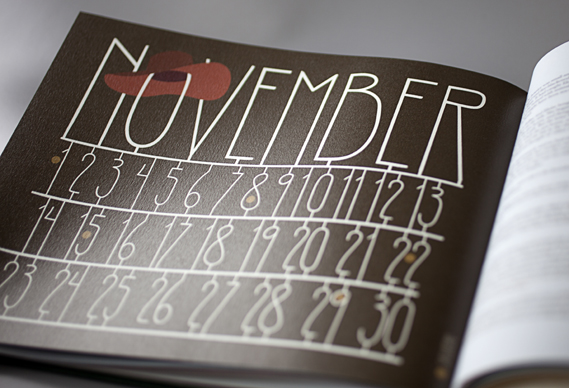 NOVEMBER
1 2 3 4 5 6 7 8 9 10 11 12 13
14 15 16 17 18 19 20 21 22
23 24 25 26 27 28 29 30